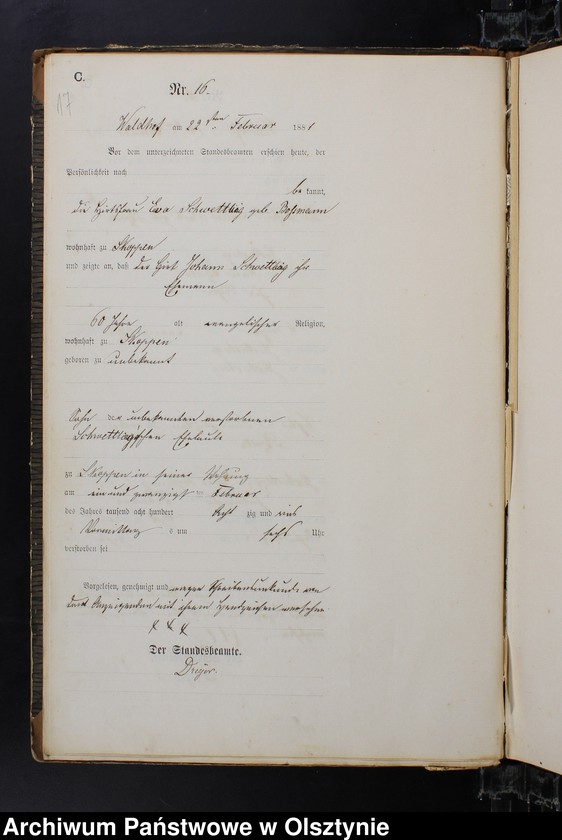 C.
17
Nr. 16.
Waldhof am 22 sten Februar 1881
Vor dem unterzeichneten Standesbeamten erschien heute, der
Persönlichkeit nach
be kannt,
die Hirtsfrau Eva geb.
wohnhaft zu Skoppen
und zeigte an, daß der Hirt Johann ihr
Ehemann
60 Jahre alt evangelischer Religion,
wohnhaft zu Skoppen
geboren zu unbekannt
Sohn der unbekannten verstorbenen
Eheleute
zu Skoppen in seiner Wohnung
am ein und zwanzigsten Februar
des Jahres tausend acht hundert acht zig und eins
Vormittags um sechs Uhr
verstorben sei
Vorgelesen, genehmigt und wegen Schreibensunkunde von
der Anzeigenden mit ihrem Handzeichen versehen
x x x
Der Standesbeamte.
Dreyer.
Archiwum Państwowe w Olsztynie